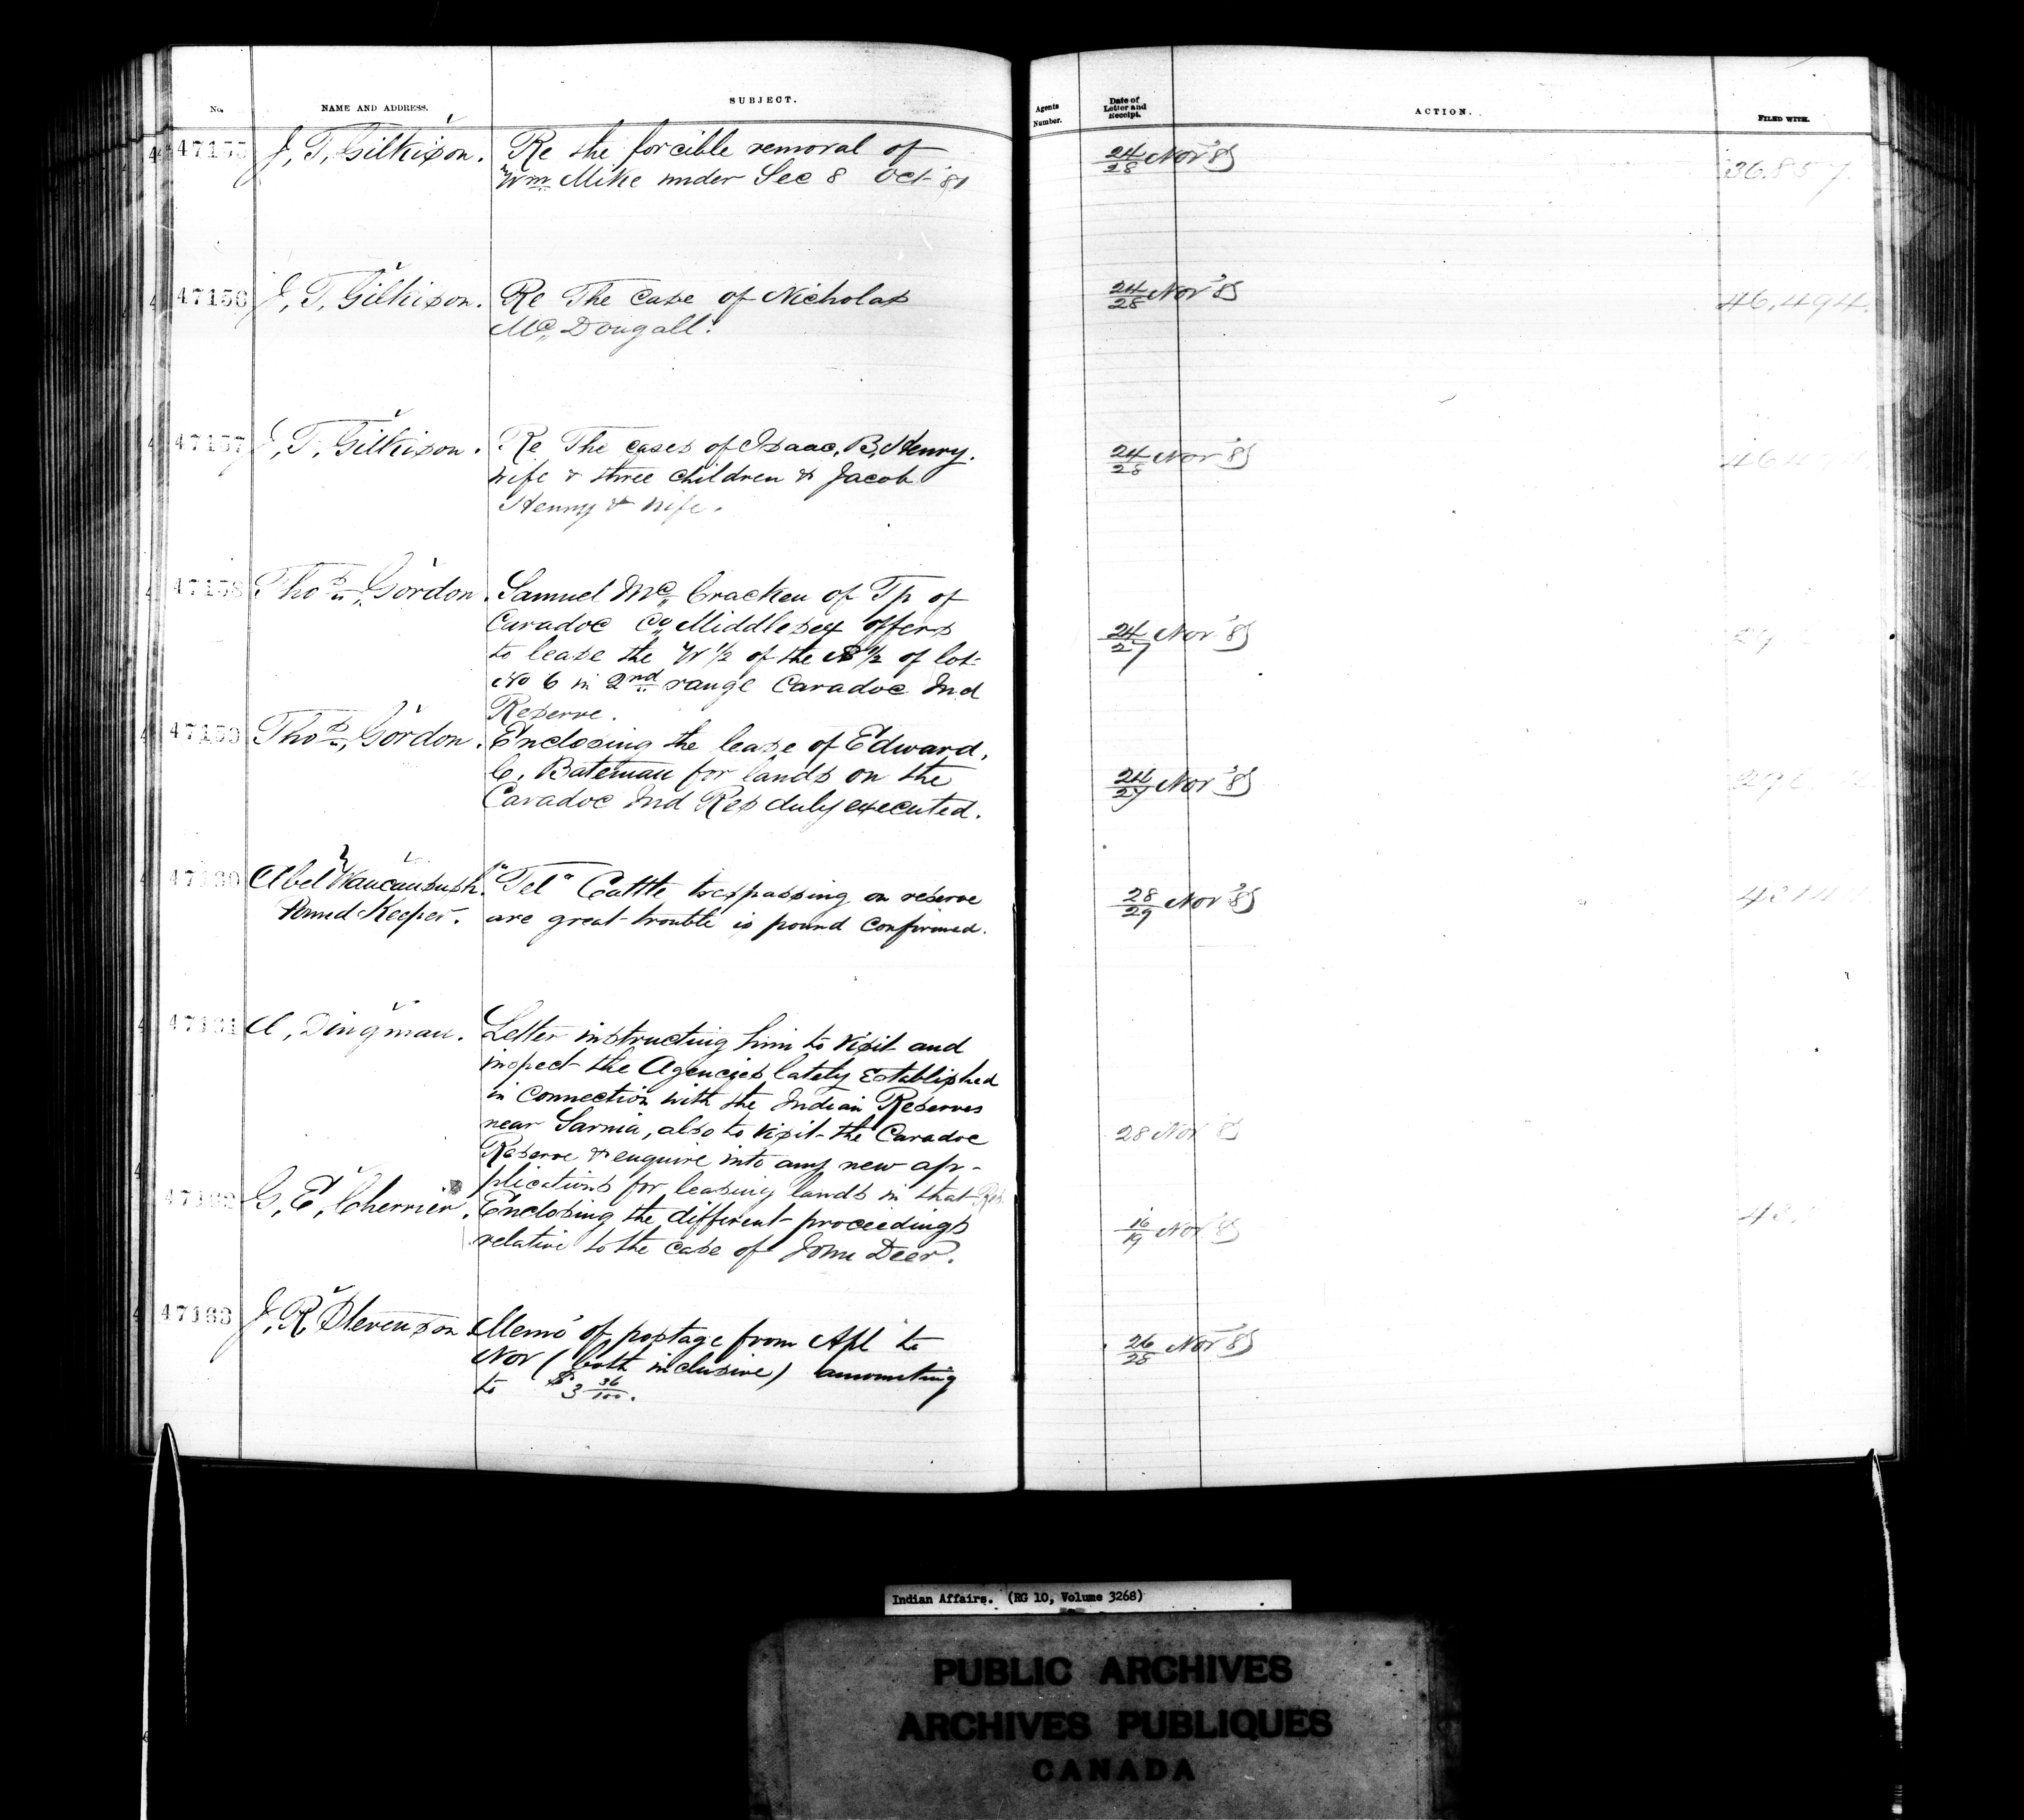 No. NAME AND ADDRESS. SUBJECT. Agents Number. Date of Letter and Receipt. ACTION. FILED WITH.
47155 J, T, Gilkison. Re the forcible removal of 24/28 Nov '85 36.857.
Wm Mike under Sec 8 Oct '81
47156 J, T, Gilkison. Re The case of Nicholas 24/28 Nov '85 46,494.
Mc Dougall.
47157 J, T, Gilkison. Re The cases of Isaac, B, Henry. 24/28 Nov '85
wife & three children & Jacob
Henry & wife.
47158 Thos, Gordon. Samuel Mc Cracken of Tp of
Caradoc Co Middlesex offers 24/27 Nov '85
to lease the W 1/2 of the 1/2 of lot
No 6 in 2nd range Caradoc Ind
Reserve.
47159 Thos, Gordon. Enclosing the lease of Edward,
C, Bateman for lands on the 24/27 Nov '85
Caradoc Ind Res duly executed.
47160 Abel Waucaush. "Tel" Cattle trespassing on reserve 28/29 Nov '85
Pound Keeper. are great trouble is pound confirmed.
47161 A, Dingman. Letter instructing him to visit and
inspect the Agencies lately Established
in connection with the Indian Reserves
near Sarnia, also to visit the Caradoc 28 Nov '85
Reserve & enquire into any new ap-
plications for leasing lands in that Res.
47162 G, E, Cherrier. Enclosing the different proceedings 16/19 Nov '85
relative to the case of John Deer.
47163 J, R, Stevenson. Memo of postage from Apl to 26/28 Nov '85
Nov (both inclusive) amounting
to $3 36/100.
Indian Affairs. (RG 10, Volume 3268)
PUBLIC ARCHIVES
ARCHIVES PUBLIQUES
CANADA